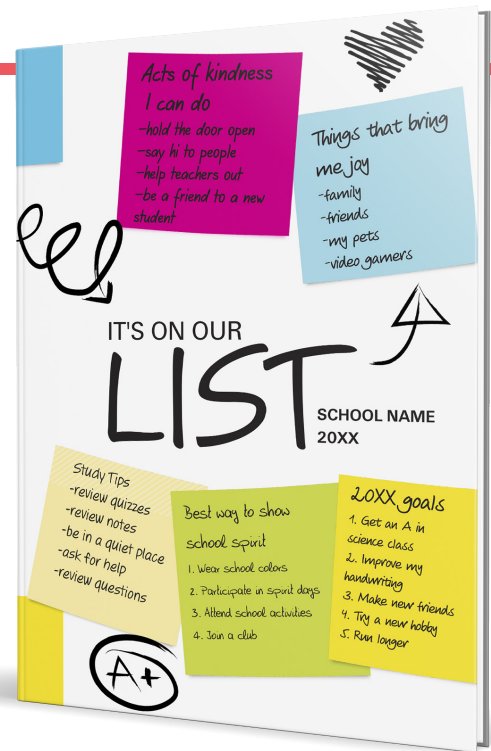 Acts of kindness
I can do
-hold the door open
-say hi to people
-help teachers out
-be a friend to a new
student
Things that bring
me joy
-family
-friends
-my pets
-video gamers
IT'S ON OUR
LIST
SCHOOL NAME
20XX
Study Tips
-review quizzes
-review notes
-be in a quiet place
-ask for help
-review questions
Best way to show
school spirit
1. Wear school colors
2. Participate in spirit days
3. Attend school activities
4. Join a club
20XX goals
1. Get an A in
science class
2. Improve my
handwriting
3. Make new friends
4. Try a new hobby
5. Run longer
A+